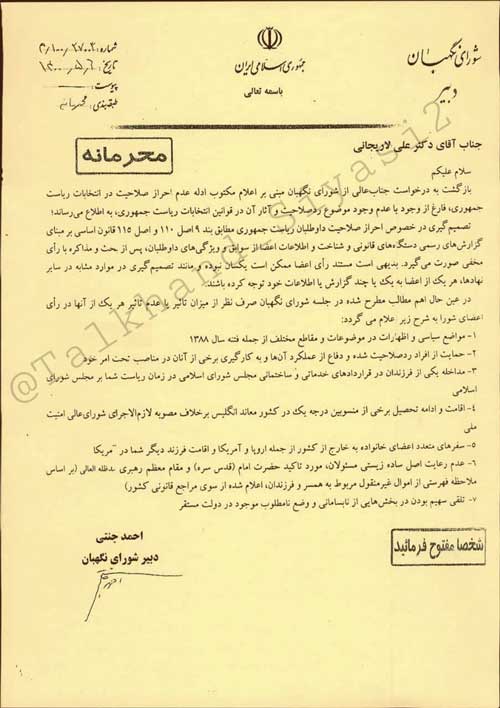 شورای نگهبان
دبیر
جمهوری اسلامی ایران
باسمه تعالی
شماره:
تاریخ: ۱۴۰۰٫۵٫۶
پیوست:
طبقه‌بندی: محرمانه
محرمانه
جناب آقای دکتر علی لاریجانی
سلام علیکم
بازگشت به درخواست جناب‌عالی از شورای نگهبان مبنی بر اعلام مکتوب ادله عدم احراز صلاحیت در انتخابات ریاست
جمهوری، فارغ از وجود یا عدم وجود موضوع ردصلاحیت و آثار آن در قوانین انتخابات ریاست جمهوری، به اطلاع می‌رساند؛
تصمیم‌گیری در خصوص احراز صلاحیت داوطلبان ریاست جمهوری مطابق بند ۹ اصل ۱۱۰ و اصل ۱۱۵ قانون اساسی بر مبنای
گزارش‌های رسمی دستگاه‌های قانونی و شناخت و اطلاعات اعضا از سوابق و ویژگی‌های داوطلبان، پس از بحث و مذاکره با رأی
مخفی صورت می‌گیرد. بدیهی است مستند رأی اعضا ممکن است یکسان نبوده و مانند تصمیم‌گیری در موارد مشابه در سایر
نهادها، هر یک از اعضا به یک یا چند گزارش یا اطلاعات خود توجه کرده باشند.
در عین حال اهم مطالب مطرح شده در جلسه شورای نگهبان صرف نظر از میزان تاثیر یا عدم تاثیر هر یک از آنها در رأی
اعضای شورا به شرح زیر اعلام می گردد:
۱- مواضع سیاسی و اظهارات در موضوعات و مقاطع مختلف از جمله فتنه سال ۱۳۸۸
۲- حمایت از افراد ردصلاحیت شده و دفاع از عملکرد آن‌ها و به کارگیری برخی از آنان در مناصب تحت امر خود
۳- مداخله یکی از فرزندان در قراردادهای خدماتی و ساختمانی مجلس شورای اسلامی در زمان ریاست شما بر مجلس شورای
اسلامی
۴- اقامت و ادامه تحصیل برخی از منسوبین درجه یک در کشور معاند انگلیس برخلاف مصوبه لازم‌الاجرای شورای‌عالی امنیت
ملی
۵- سفرهای متعدد اعضای خانواده به خارج از کشور از جمله اروپا و آمریکا و اقامت فرزند دیگر شما در آمریکا
۶- عدم رعایت اصل ساده زیستی مسئولان، مورد تاکید حضرت امام (قدس سره) و مقام معظم رهبری مدظله العالی (بر اساس
ملاحظه فهرستی از اموال غیرمنقول مربوط به همسر و فرزندان، اعلام شده از سوی مراجع قانونی کشور)
۷- تلقی سهیم بودن در بخش‌هایی از نابسامانی و وضع نامطلوب موجود در دولت مستقر
احمد جنتی
دبیر شورای نگهبان
شخصا مفتوح فرمائید
@Talkhand_Siyasi2